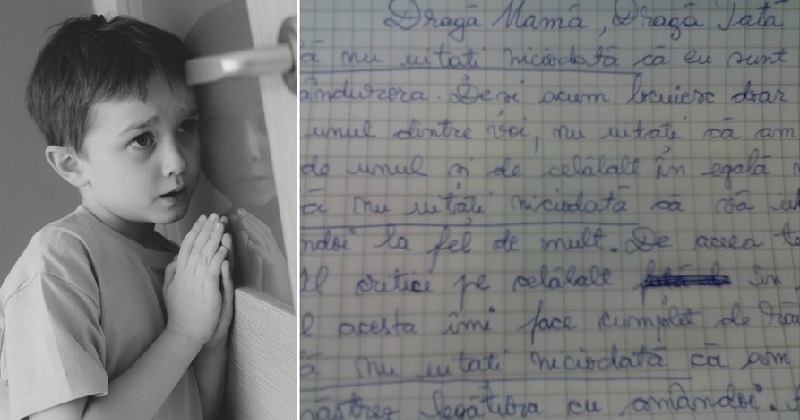 Dragă Mamă, Dragă Tată
ă nu uitați niciodată că eu sunt
ândurora. Deși acum locuiesc doar
unul dintre voi, nu uitați că am
de unul și de celălalt în egală
ă nu uitați niciodată că vă
ndoi la fel de mult. De aceea
critice pe celălalt în
acesta îmi face cumplit de
ă nu uitați niciodată că am
ăstrez legătura cu amândoi.